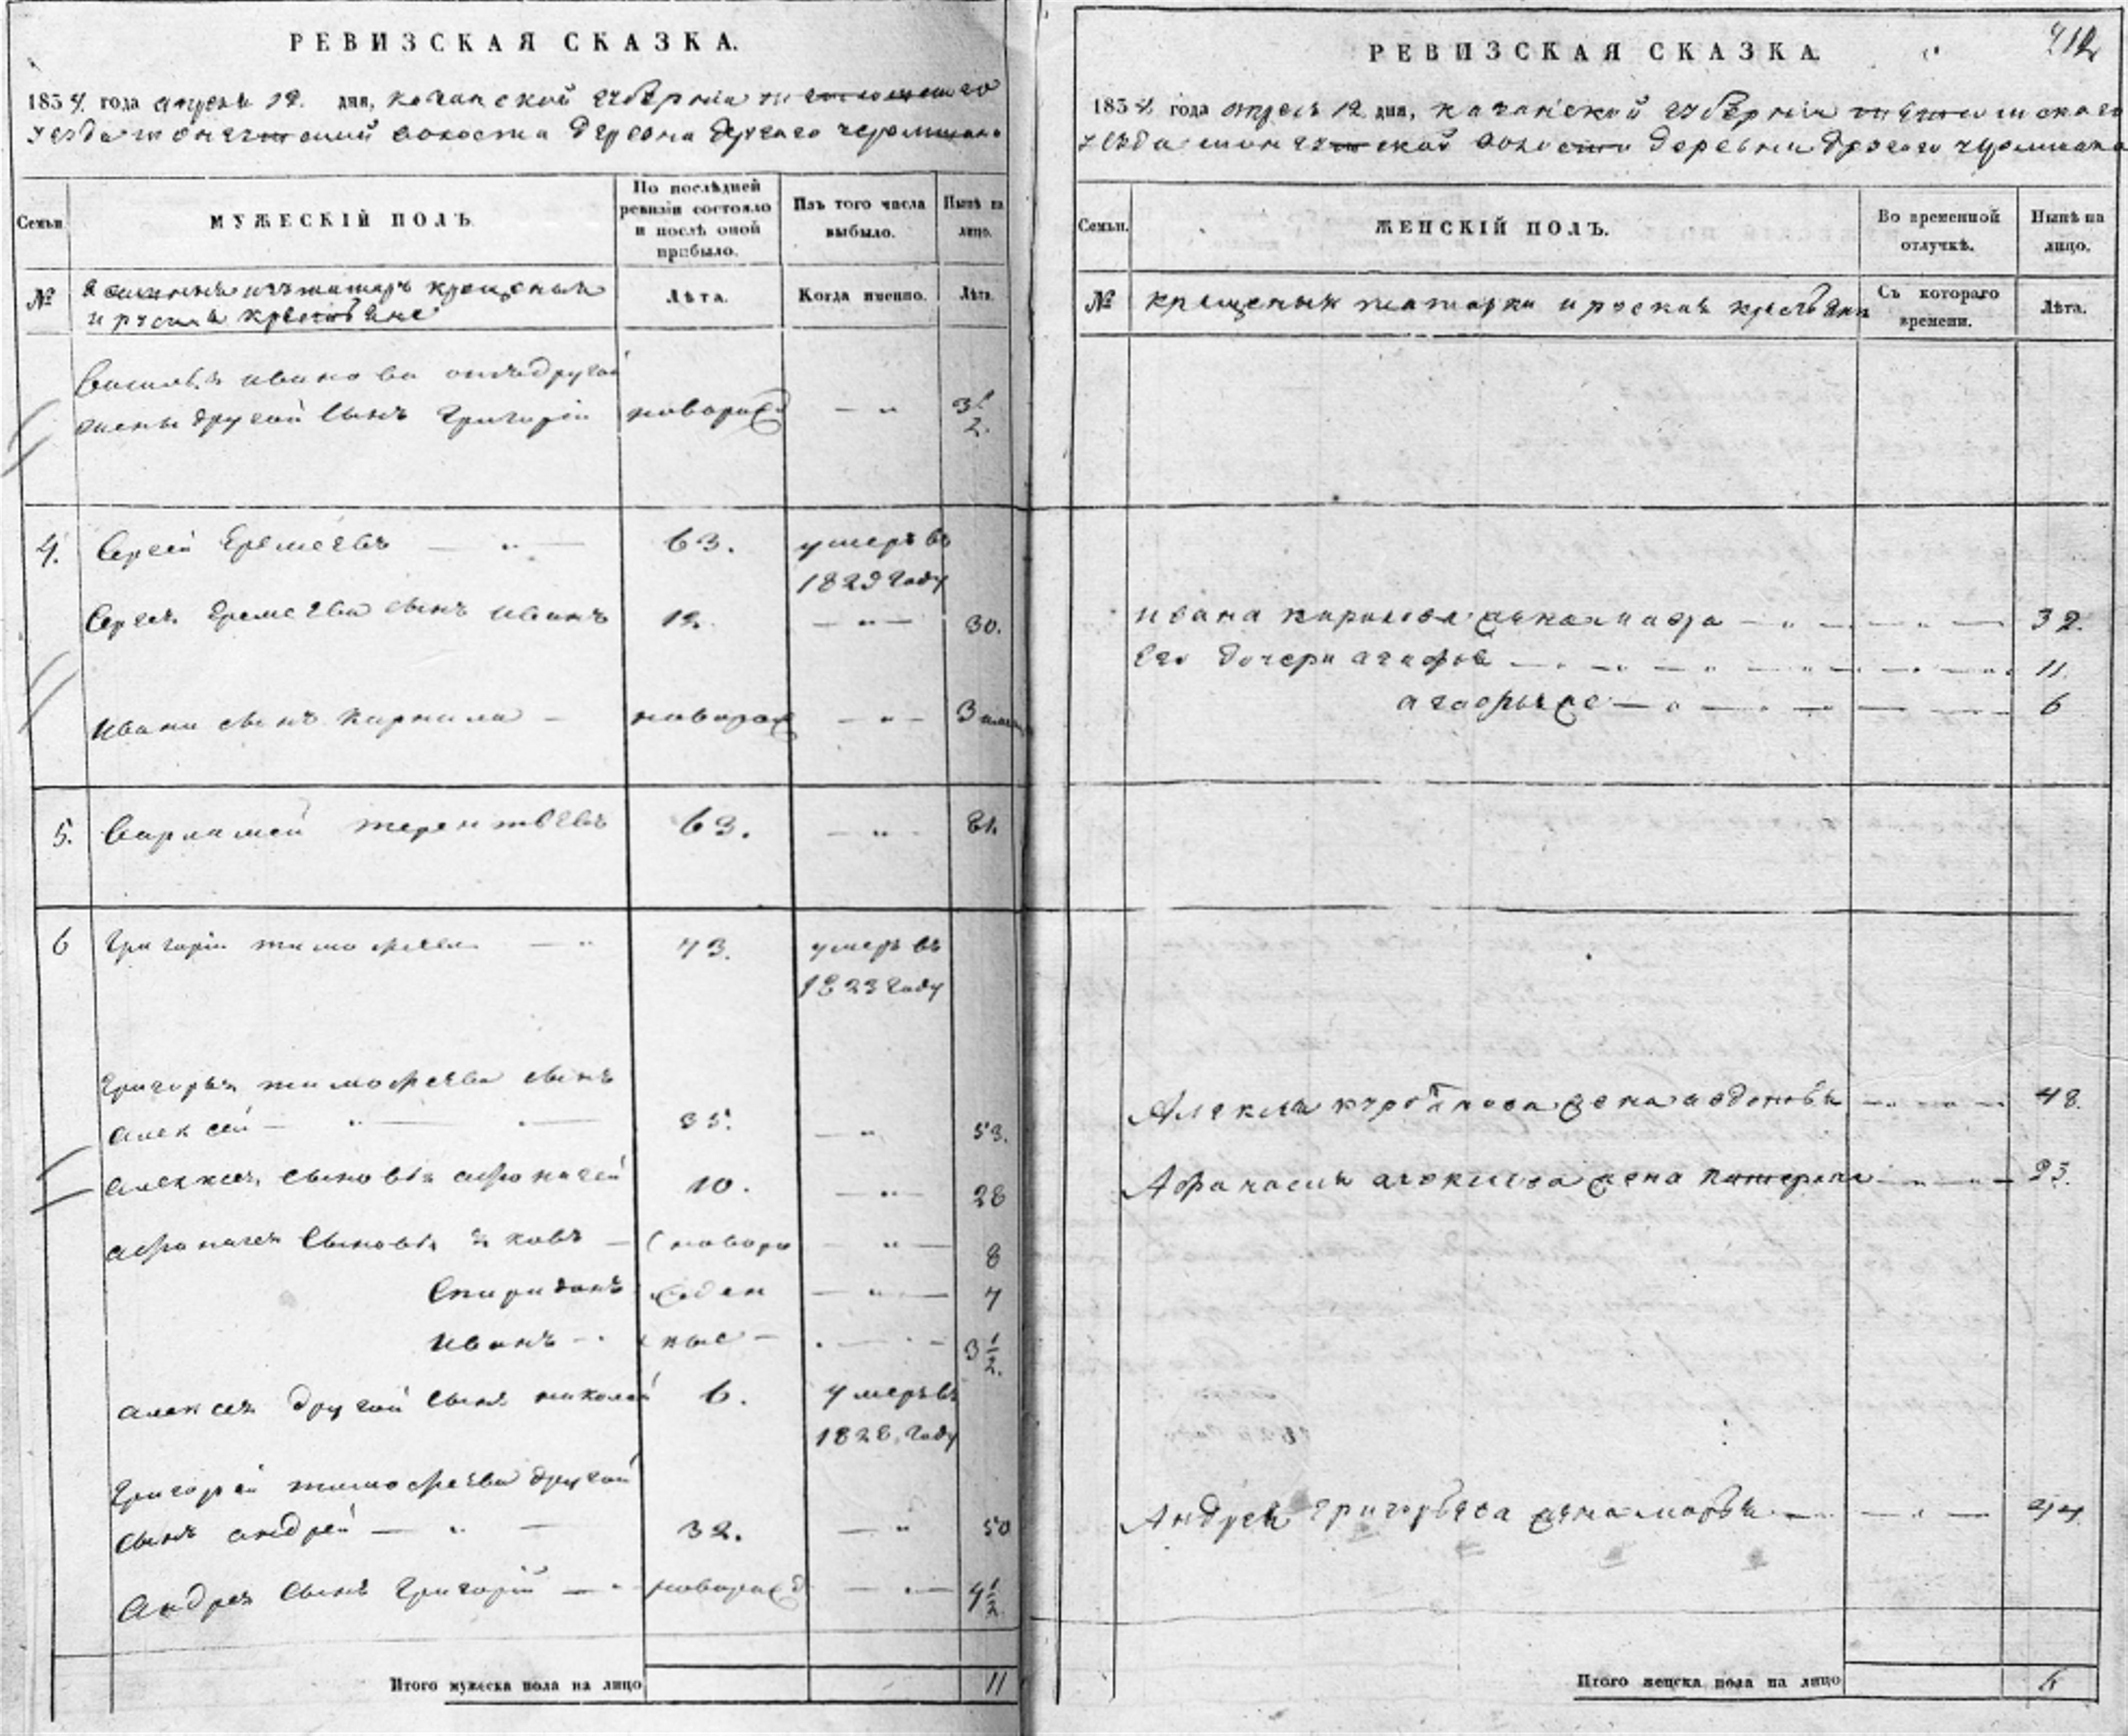 РЕВИЗСКАЯ СКАЗКА.
1834. года апреля 12. дня, казанской губернии
уезда волости деревни другаго черемшана
Семьи.
МУЖЕСКІЙ ПОЛЪ.
По послѣдней ревизіи состояло и послѣ оной прибыло.
Изъ того числа выбыло.
Нынѣ на лицо.
№
изъ татаръ крещеныя
и руския крестьяне
Лѣта.
Когда именно.
Лѣта.
Василья иванова отъ другой
жены другой сынъ григорей новорожд — „ 3 1/2.
4. Сергей Еремеевъ — „ — 63. умеръ въ
1829 году
Сергея Еремеева сынъ иванъ 12. — „ — 30.
ивана сынъ кирила — новорож — „ — 3
5. Варламей терентьевъ 63. — „ — 81.
6 григорей тимофеевъ — „ 73. умеръ въ
1823 году
григорья тимофеева сынъ
алексей — „ — 35. — „ 53.
алексея сыновья афонасей 10. — „ — 28
афонасея сыновья яковъ — новоро — „ — 8
Спиридонъ жден — „ — 7
иванъ — ные — 3 1/2.
алексея другой сынъ николай 6. умеръ въ
1828. году
григорей тимофеева другой
сынъ андрей — „ — 32. — „ 50
Андрея сынъ григорей — новорожд — „ — 4 1/2
Итого мужеска пола на лицо 11
712
РЕВИЗСКАЯ СКАЗКА.
1834. года апреля 12 дня, казанской губернии
уезда волости деревни другаго черемшана
Семьи.
ЖЕНСКІЙ ПОЛЪ.
Во временной отлучкѣ.
Нынѣ на лицо.
№
крещеныя татарки и руския крестьянки
Съ котораго времени.
Лѣта.
ивана жена — „ — „ — 32.
Его дочери агафья — „ — „ — 11.
— „ — „ — 6
Алексея жена — „ — 48.
Афонасья алексеева жена катерина — „ — 23.
Андрея григорьева жена марья — „ — 44.
Итого женска пола на лицо